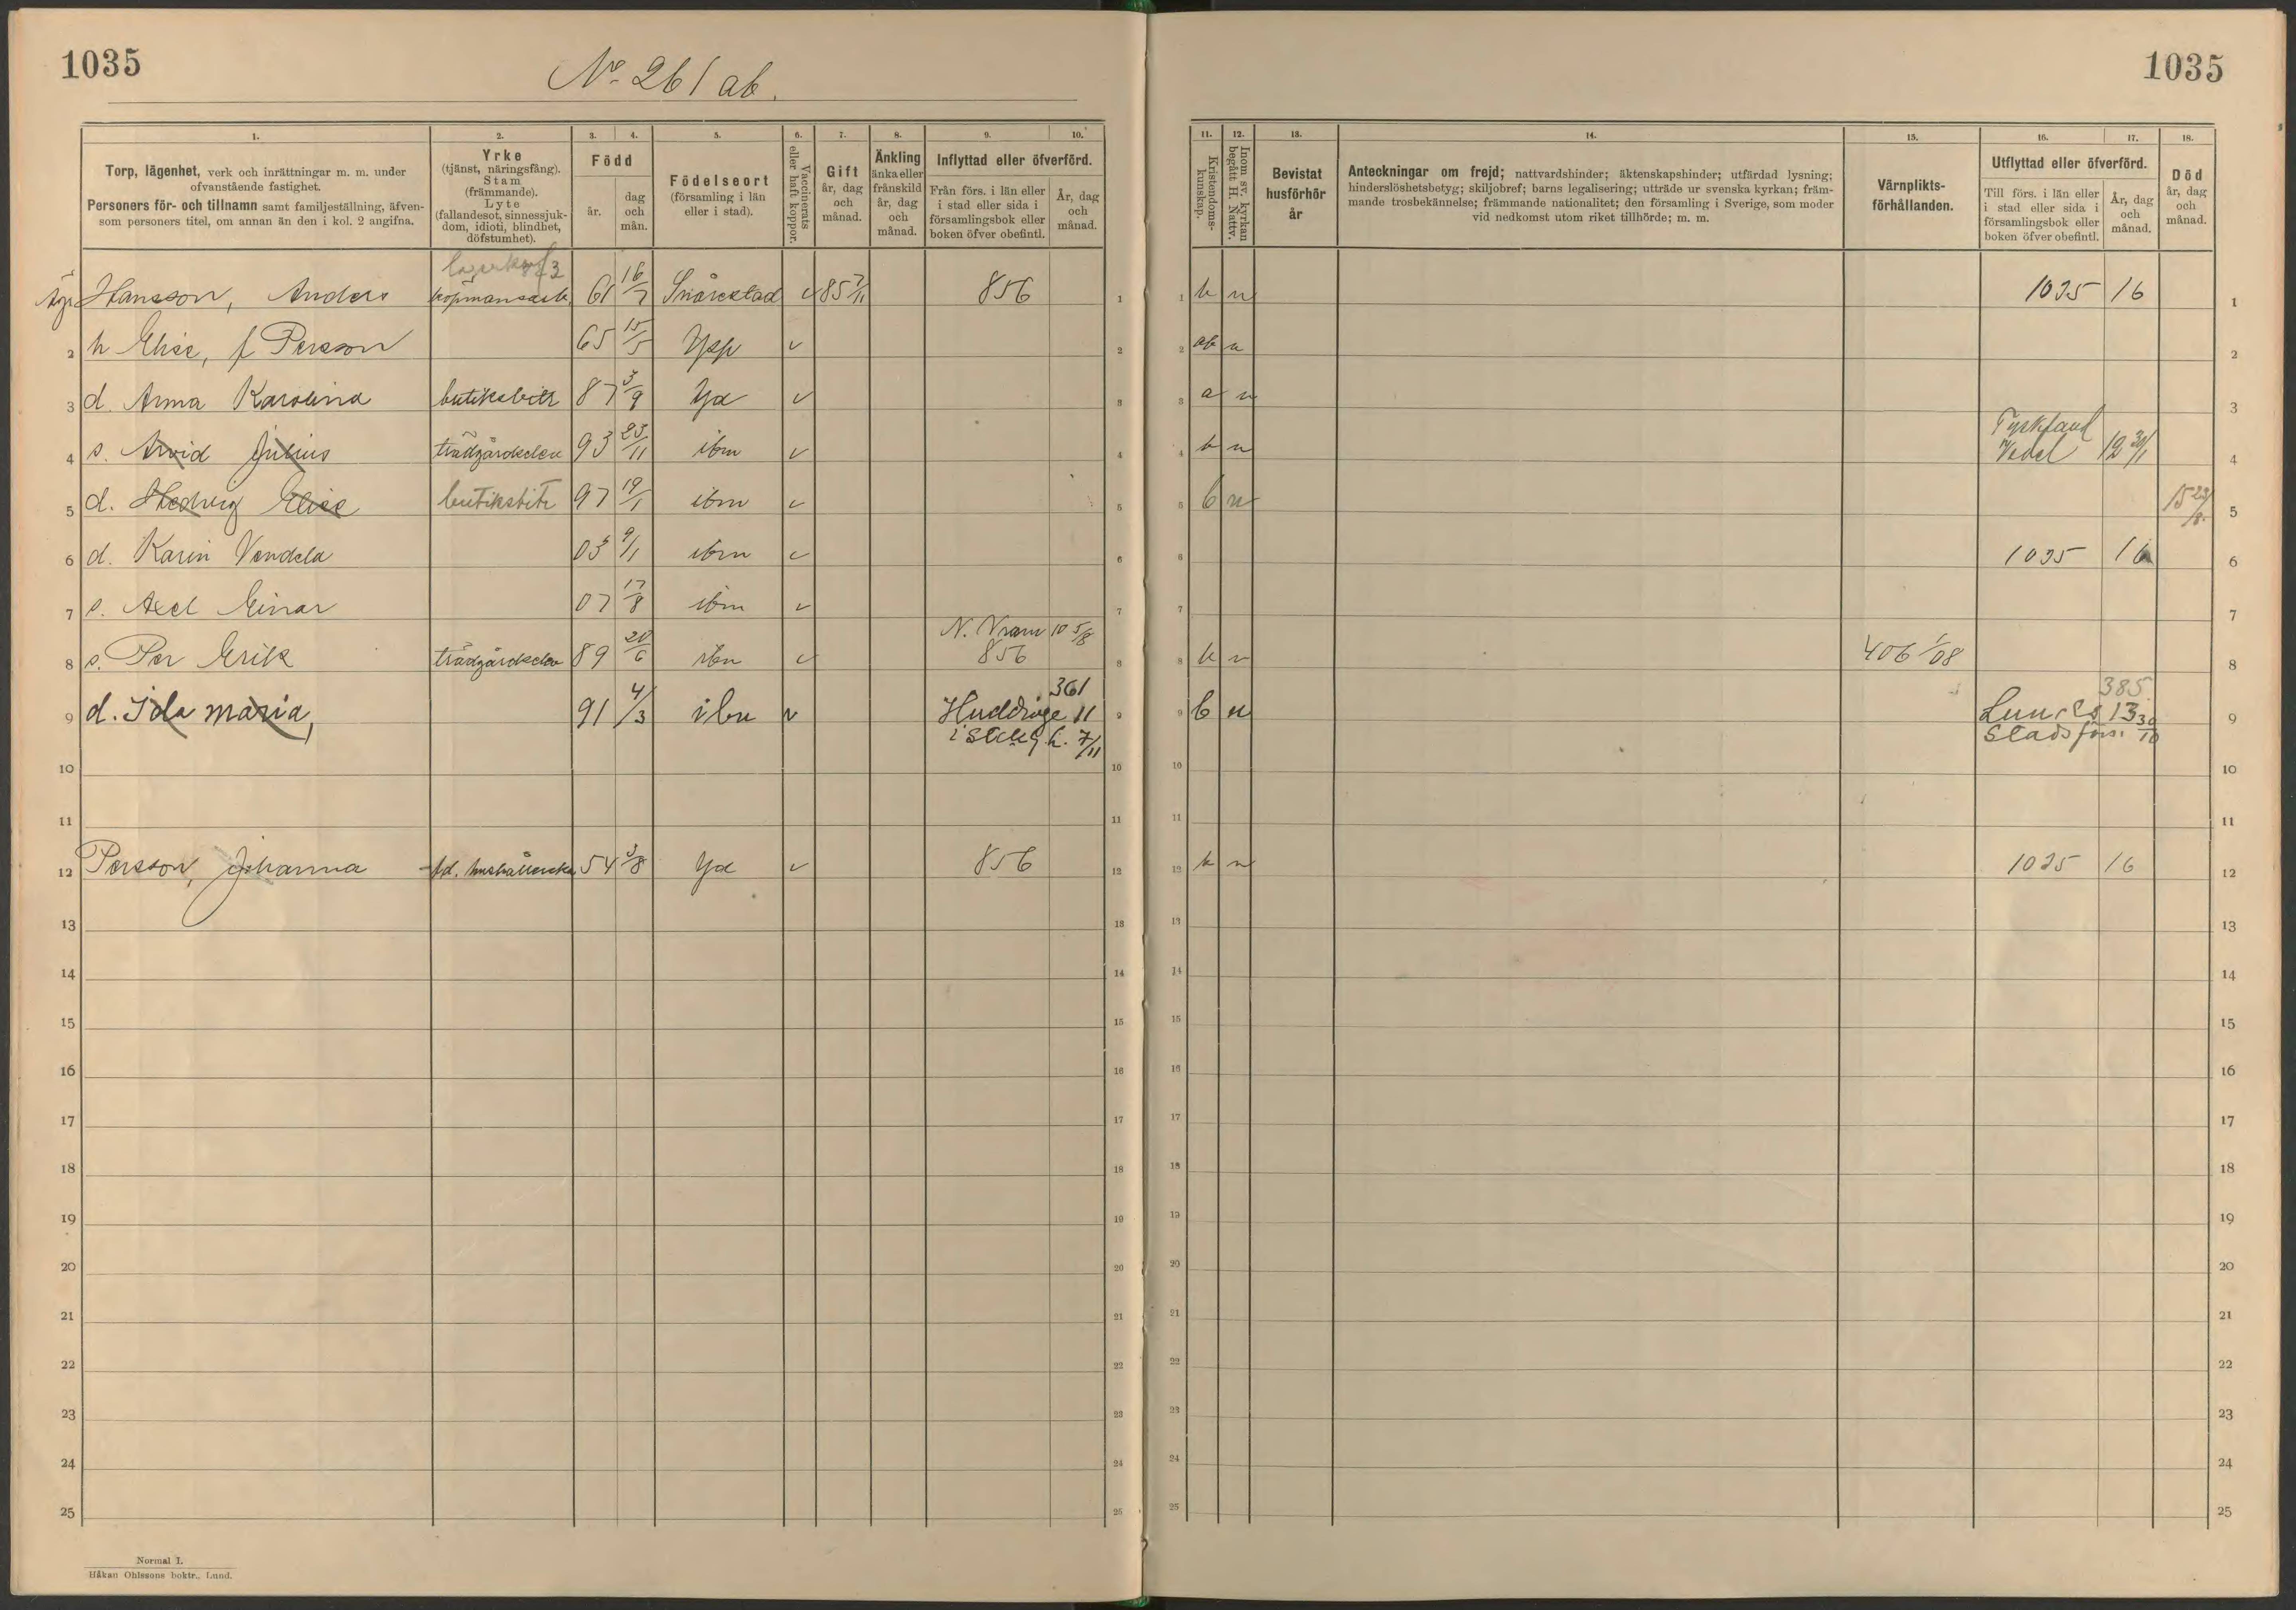 1035
No 261 ab.
1035
1. 2. 3. 4. 5. 6. 7. 8. 9. 10.
Torp, lägenhet, verk och inrättningar m. m. under
ofvanstående fastighet.
Personers för- och tillnamn samt familjeställning, äfven-
som personers titel, om annan än den i kol. 2 angifna.
Yrke
(tjänst, näringsfång).
Stam
(främmande).
Lyte
(fallandesot, sinnessjuk-
dom, idioti, blindhet,
döfstumhet).
Född
år.
dag
och
mån.
Födelseort
(församling i län
eller i stad).
Vaccinerats
eller haft koppor.
Gift
år, dag
och
månad.
Änkling
änka eller
frånskild
år, dag
och
månad.
Inflyttad eller öfverförd.
Från förs. i län eller
i stad eller sida i
församlingsbok eller
boken öfver obefintl.
År, dag
och
månad.
11. 12. 13. 14. 15. 16. 17. 18.
Kristendoms-
kunskap.
Inom sv. kyrkan
begått H. Nattv.
Bevistat
husförhör
år
Anteckningar om frejd; nattvardshinder; äktenskapshinder; utfärdad lysning;
hinderslöshetsbetyg; skiljobref; barns legalisering; utträde ur svenska kyrkan; främ-
mande trosbekännelse; främmande nationalitet; den församling i Sverige, som moder
vid nedkomst utom riket tillhörde; m. m.
Värnplikts-
förhållanden.
Utflyttad eller öfverförd.
Till förs. i län eller
i stad eller sida i
församlingsbok eller
boken öfver obefintl.
År, dag
och
månad.
Död
år, dag
och
månad.
Hansson, Anders 61 16/7 Snårestad v 85 7/11 856 1 1 b n 1035 16 1
2 h Elise, f Persson 65 15/5 Ypp v 2 2 ab n 2
3 d. Anna Karolina butiksbitr 87 3/9 Yd v 3 3 a n 3
4 s. Arvid Julius trädgårdselev 93 23/11 ibm v 4 4 b n Tyskland
Vedel 12 30/1 4
5 d. Hedvig Elise butiksbitr 97 19/1 ibm v 5 5 b n 15 23/8 5
6 d. Karin Vendela 03 9/1 ibm v 6 6 1035 16 6
7 s. Axel Einar 07 17/8 ibm v 7 7 7
N. Vram 10 5/8
8 s. Per Erik trädgårdselev 89 20/6 ibm v 856 8 8 b n 406 1/08 8
361 385
9 d. Ida Maria, 91 4/3 ibm v Huddinge 11 9 9 b n Lunds 13 30/10 9
i Stckh. 7/11 Stadsförs.
10 10 10 10
11 11 11 11
12 Persson, Johanna fd. hushållerska 54 3/8 Yd v 856 12 12 b n 1035 16 12
13 13 13 13
14 14 14 14
15 15 15 15
16 16 16 16
17 17 17 17
18 18 18 18
19 19 19 19
20 20 20 20
21 21 21 21
22 22 22 22
23 23 23 23
24 24 24 24
25 25 25 25
Normal I.
Håkan Ohlssons boktr., Lund.